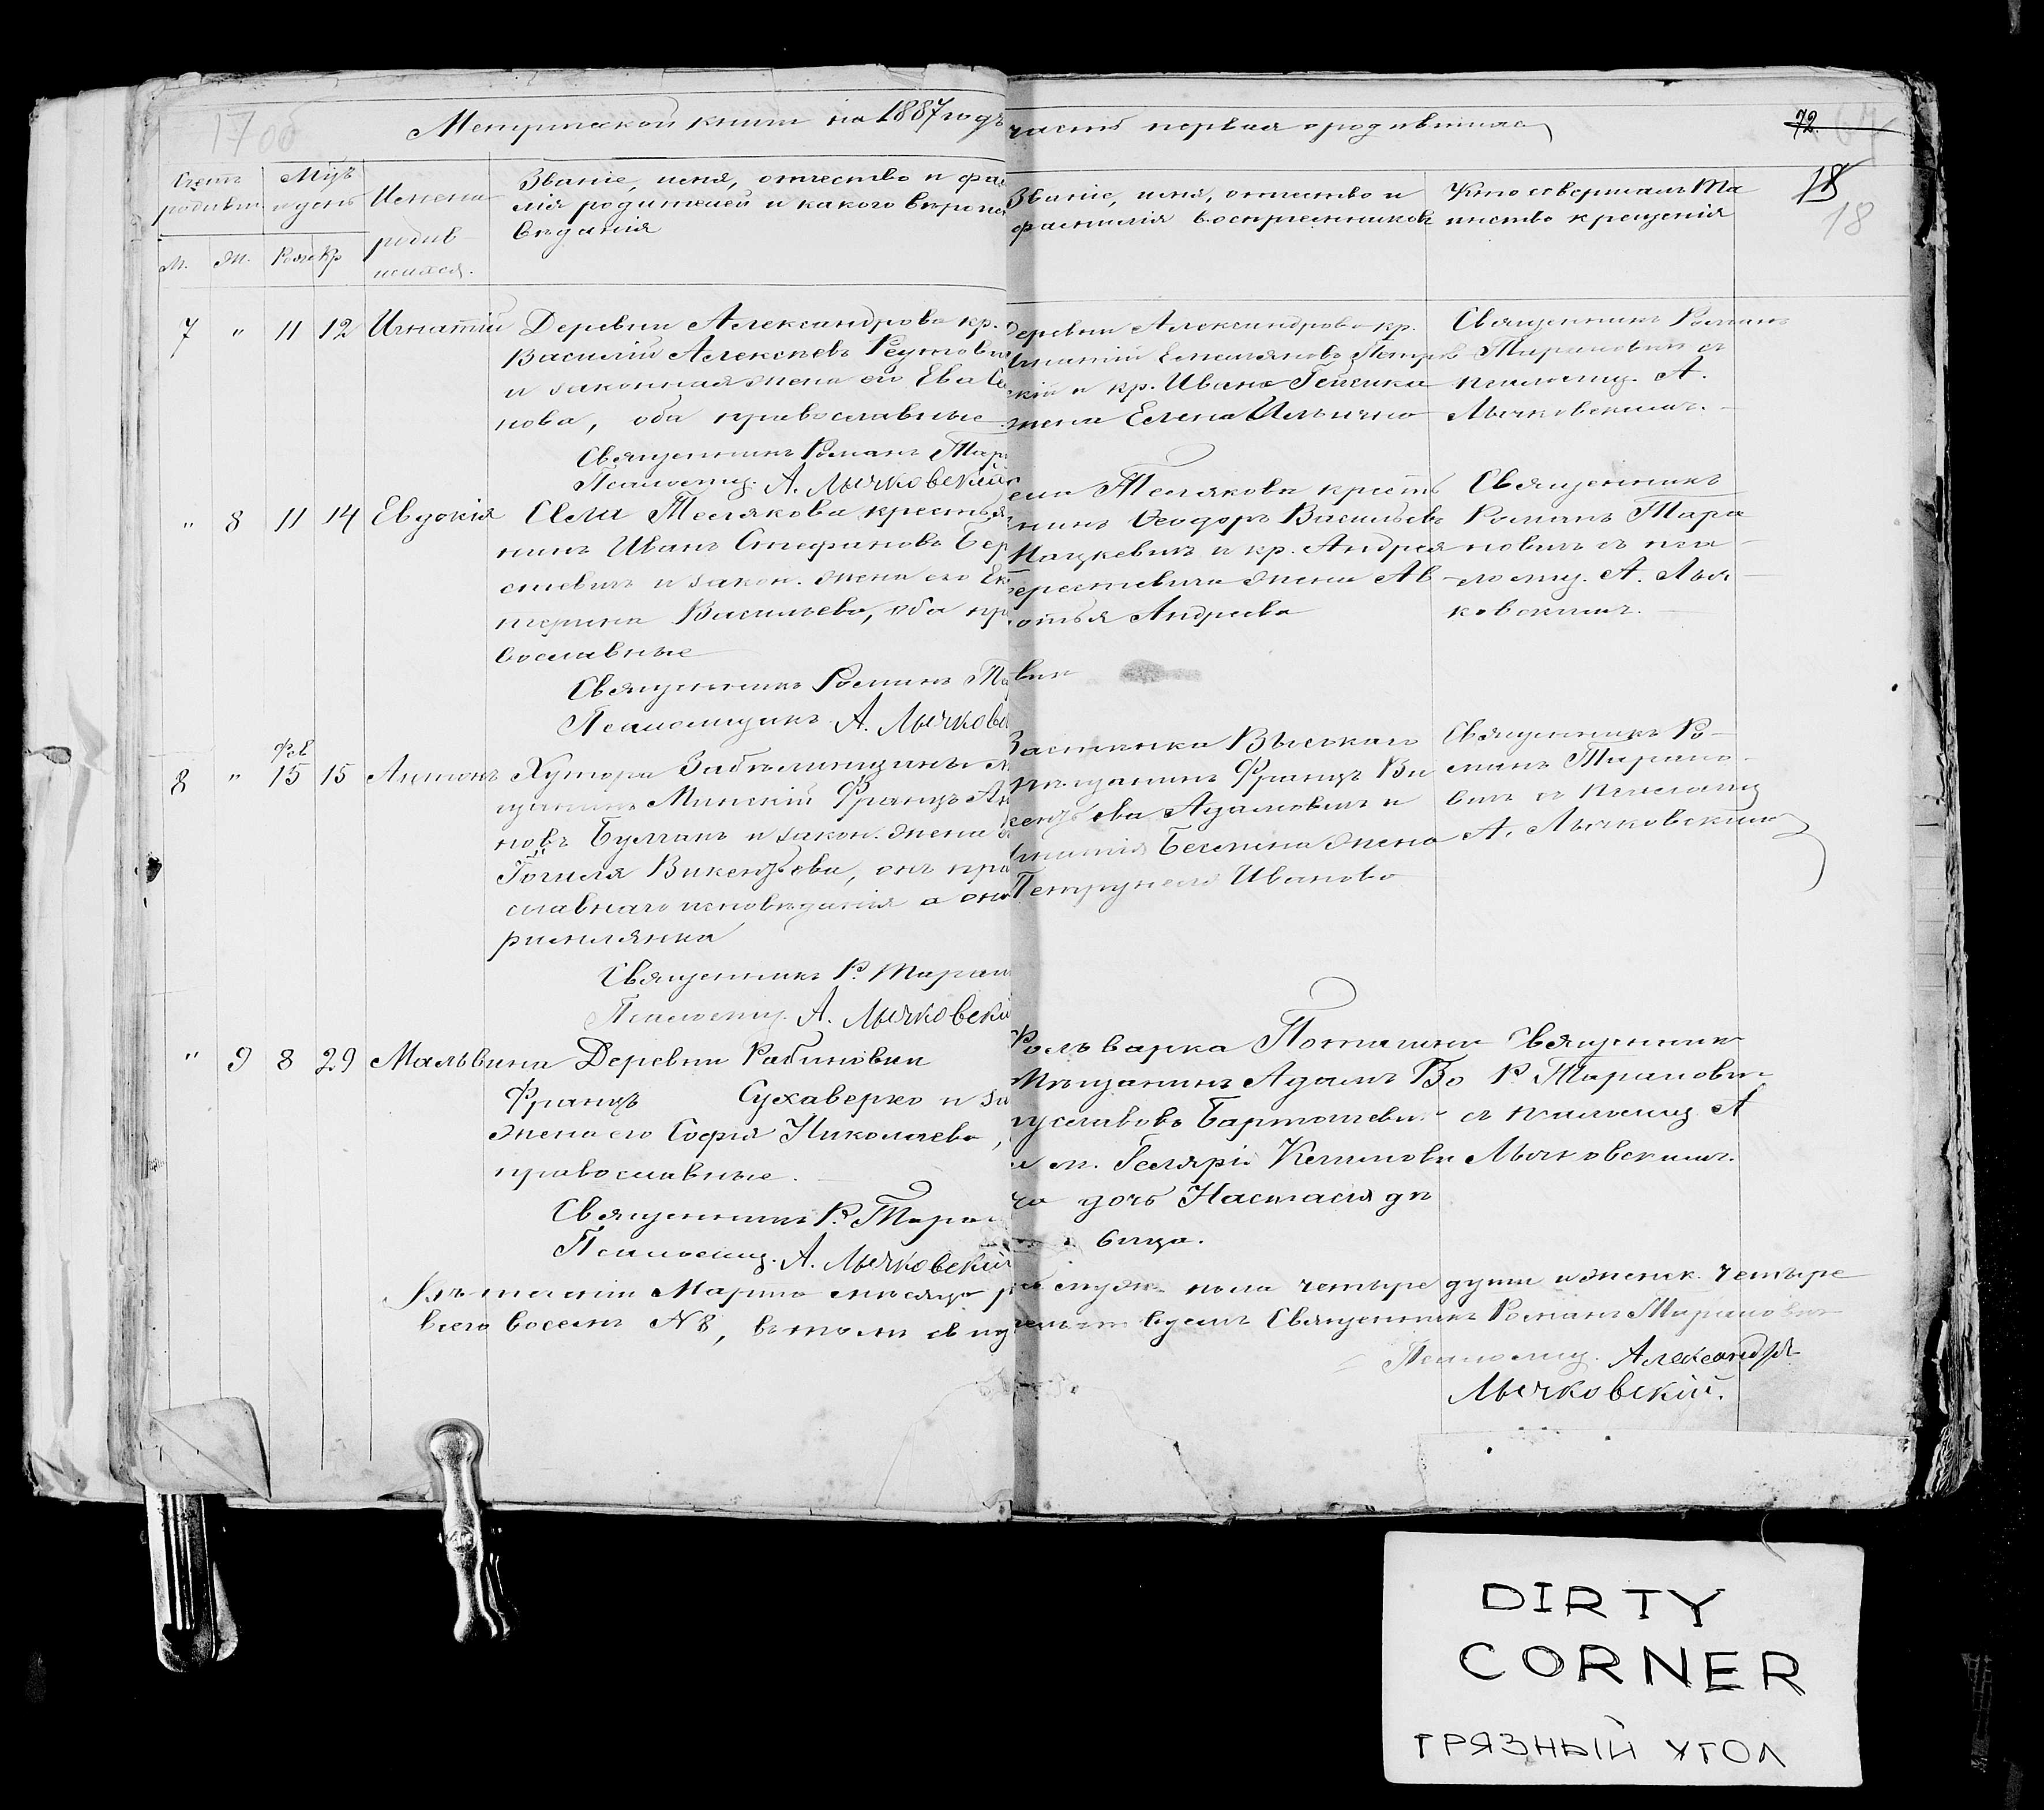 17об
Метрической книги на 1887 годъ часть первая о родившихся
72.
18
18
Счетъ родивш.
Мцъ и день
Имена родившихся.
Званіе, имя, отчество и фамилія родителей и какого вѣроисповѣданія
Званіе, имя, отчество и фамилія воспріемниковъ
Кто совершалъ Таинство крещенія
М. Ж. Рож Кр
7 " 11 12 Игнатій
Деревни Александрово кр.
Василій Алексѣевъ Реутович
и законная жена его Ева Се
нова, оба православные
Священникъ Романъ Тар
Псаломщ. А. Лычковскій
Деревни Александрово кр.
Игнатій Емельяновъ Петров
скій и кр. Ивана
жена Елена Ильична
Священникъ Романъ
Тарановичъ съ
псаломщ. А.
Лычковскимъ.
" 8 11 14 Евдокія
Села Телякова крестья
нинъ Иванъ Стефановъ Бер
стевичъ и закон. жена его Ек
терина Васильева, оба пр
вославные
Священникъ Романъ Та
Псаломщикъ А. Лычков
Села Телякова кресть
нинъ Ѳеодоръ Васильевъ
Мацкевичъ и кр. Андрея
Берестевича жена Ав
дотья Андреева
вич
Священникъ
Романъ Тара
новичъ съ пса
ломщ. А. Лыч
ковскимъ.
Фев
8 " 15 15 Антонъ
Хутора Забѣлинщины М
щанинъ Минскій Францъ Ан
новъ Булганъ и закон. жена
Викентьева, онъ пра
славнаго исповѣданія а она
римлянка
Священникъ Р. Таран
Псаломщ. А. Лычковскі
Застѣнка
Мѣщанинъ Францъ Ви
кентьевъ Адамовичъ и
Игнатія жена
Петрунеля Иванова
Священникъ Ро
манъ Тарано
вичъ съ псаломщ
А. Лычковскимъ
" 9 8 29 Мальвина
Деревни Рабиновки
Францъ Сухаверхо и за
жена его Софія Николаева,
православные.
Священникъ Р. Таран
Псаломщ. А. Лычковскій
Фольварка
Мѣщанинъ Адамъ Бо
гуславовъ Бартошевич
и м. Гелярі
ча дочь Настасія дѣ
вица.
Священник
Р. Таранович
съ псаломщ А
Лычковскимъ.
Въ теченіи Марта мѣсяца р муж. пола четыре души и женск. четыре
всего восемь № 8, въ томъ св Священникъ Романъ Тарановичъ
Псаломщ. Александръ
Лычковскій.
DIRTY
CORNER
ГРЯЗНЫЙ УГОЛ